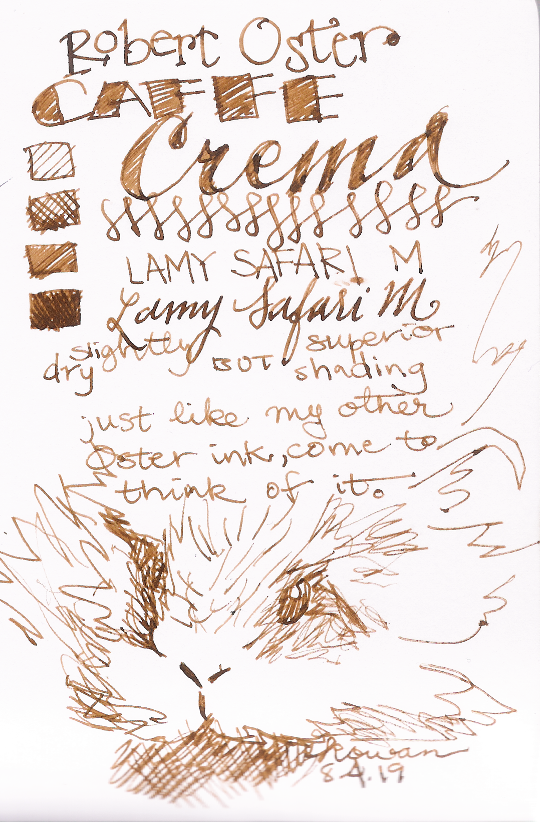 Robert Oster
CAFFE
Crema
LAMY SAFARI M
Lamy Safari M
slightly dry BUT superior shading
just like my other
Oster ink, come to
think of it.
Rowan
8.4.19